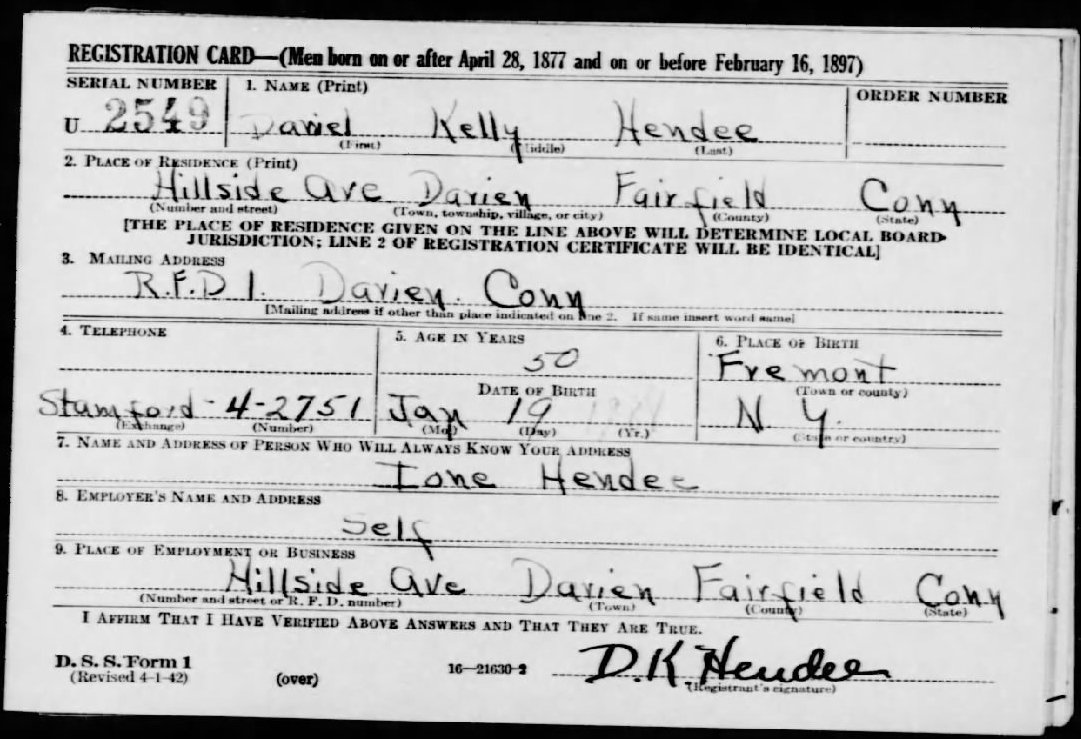 REGISTRATION CARD—(Men born on or after April 28, 1877 and on or before February 16, 1897)
SERIAL NUMBER 1. NAME (Print) ORDER NUMBER
U 2549 Daniel Kelly Hendee
(First) (Middle) (Last)
2. PLACE OF RESIDENCE (Print)
Hillside Ave Darien Fairfield Conn
(Number and street) (Town, township, village, or city) (County) (State)
[THE PLACE OF RESIDENCE GIVEN ON THE LINE ABOVE WILL DETERMINE LOCAL BOARD
JURISDICTION; LINE 2 OF REGISTRATION CERTIFICATE WILL BE IDENTICAL]
3. MAILING ADDRESS
R.F.D 1. Darien. Conn
[Mailing address if other than place indicated on line 2. If same insert word same]
4. TELEPHONE 5. AGE IN YEARS 6. PLACE OF BIRTH
50 Fremont
DATE OF BIRTH (Town or county)
Stamford - 4-2751 Jan 19 N Y.
(Exchange) (Number) (Mo.) (Day) (Yr.) (State or country)
7. NAME AND ADDRESS OF PERSON WHO WILL ALWAYS KNOW YOUR ADDRESS
Ione Hendee
8. EMPLOYER'S NAME AND ADDRESS
Self
9. PLACE OF EMPLOYMENT OR BUSINESS
Hillside Ave Darien Fairfield Conn
(Number and street or R. F. D. number) (Town) (County) (State)
I AFFIRM THAT I HAVE VERIFIED ABOVE ANSWERS AND THAT THEY ARE TRUE.
D. S. S. Form 1
(Revised 4-1-42) (over) 16—21630-2 D.K. Hendee
(Registrant's signature)